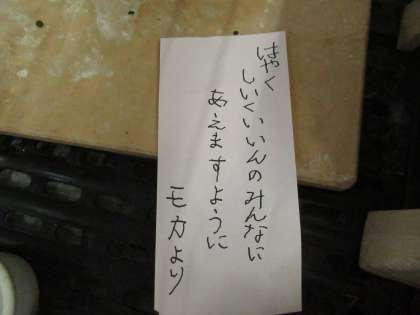 はやく
しいくいいんのみんなに
あえますように
モカより